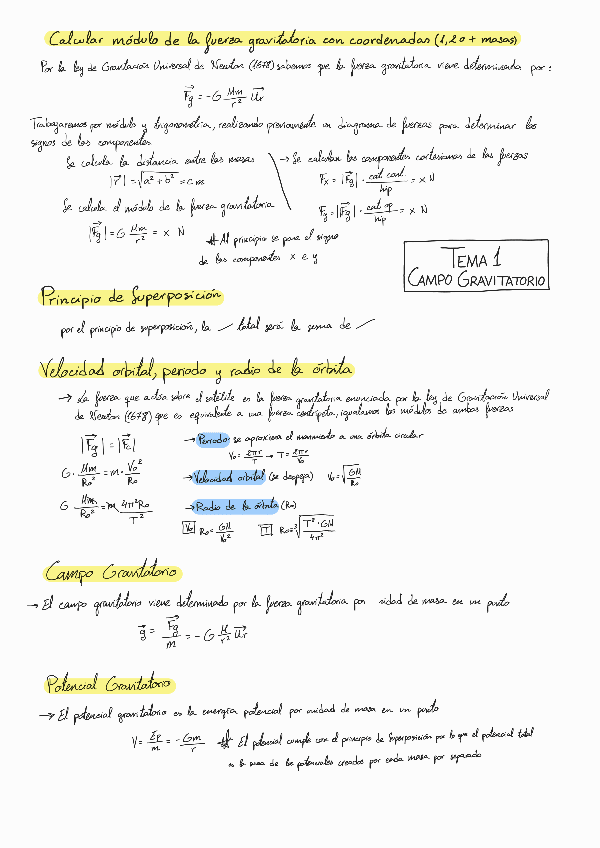 Calcular módulo de la fuerza gravitatoria con coordenadas (1,2 o + masas)
Por la ley de Gravitación Universal de Newton (1678) sabemos que la fuerza gravitatoria viene determinada por:
F⃗g = -G Mm/r² U⃗r
Trabajaremos por módulo y trigonometría, realizando previamente un diagrama de fuerzas para determinar los
signos de las componentes
Se calcula la distancia entre las masas
|r⃗| = √a² + b² = c m
Se calcula el módulo de la fuerza gravitatoria
|F⃗g| = G Mm/r² = x N
→ Se calculan las componentes cartesianas de las fuerzas
Fx = |F⃗g| · cat cont./hip = x N
Fy = |F⃗g| · cat op/hip = x N
# Al principio se pone el signo
de las componentes x e y
TEMA 1
CAMPO GRAVITATORIO
Principio de Superposición
por el principio de superposición, la total será la suma de
Velocidad orbital, periodo y radio de la órbita
→ La fuerza que actúa sobre el satélite es la fuerza gravitatoria enunciada por la ley de Gravitación Universal
de Newton (1678) que es equivalente a una fuerza centrípeta, igualamos los módulos de ambas fuerzas
|F⃗g| = |F⃗c|
G · Mm/Ro² = m · Vo²/Ro
G Mm/Ro² = m 4π²Ro/T²
→ Periodo: se aproxima el movimiento a una órbita circular
Vo = 2πr/T → T = 2πr/Vo
→ Velocidad orbital (se despeja) Vo = √GM/Ro
→ Radio de la órbita (Ro)
Vo Ro = GM/Vo² T Ro = ³√T²·GM/4π²
Campo Gravitatorio
→ El campo gravitatorio viene determinado por la fuerza gravitatoria por nidad de masa en un punto
g⃗ = F⃗g/m = -G M/r² U⃗r
Potencial Gravitatorio
→ El potencial gravitatorio es la energía potencial por unidad de masa en un punto
V = Ep/m = -Gm/r # El potencial cumple con el principio de Superposición por lo que el potencial total
es la suma de los potenciales creados por cada masa por separado